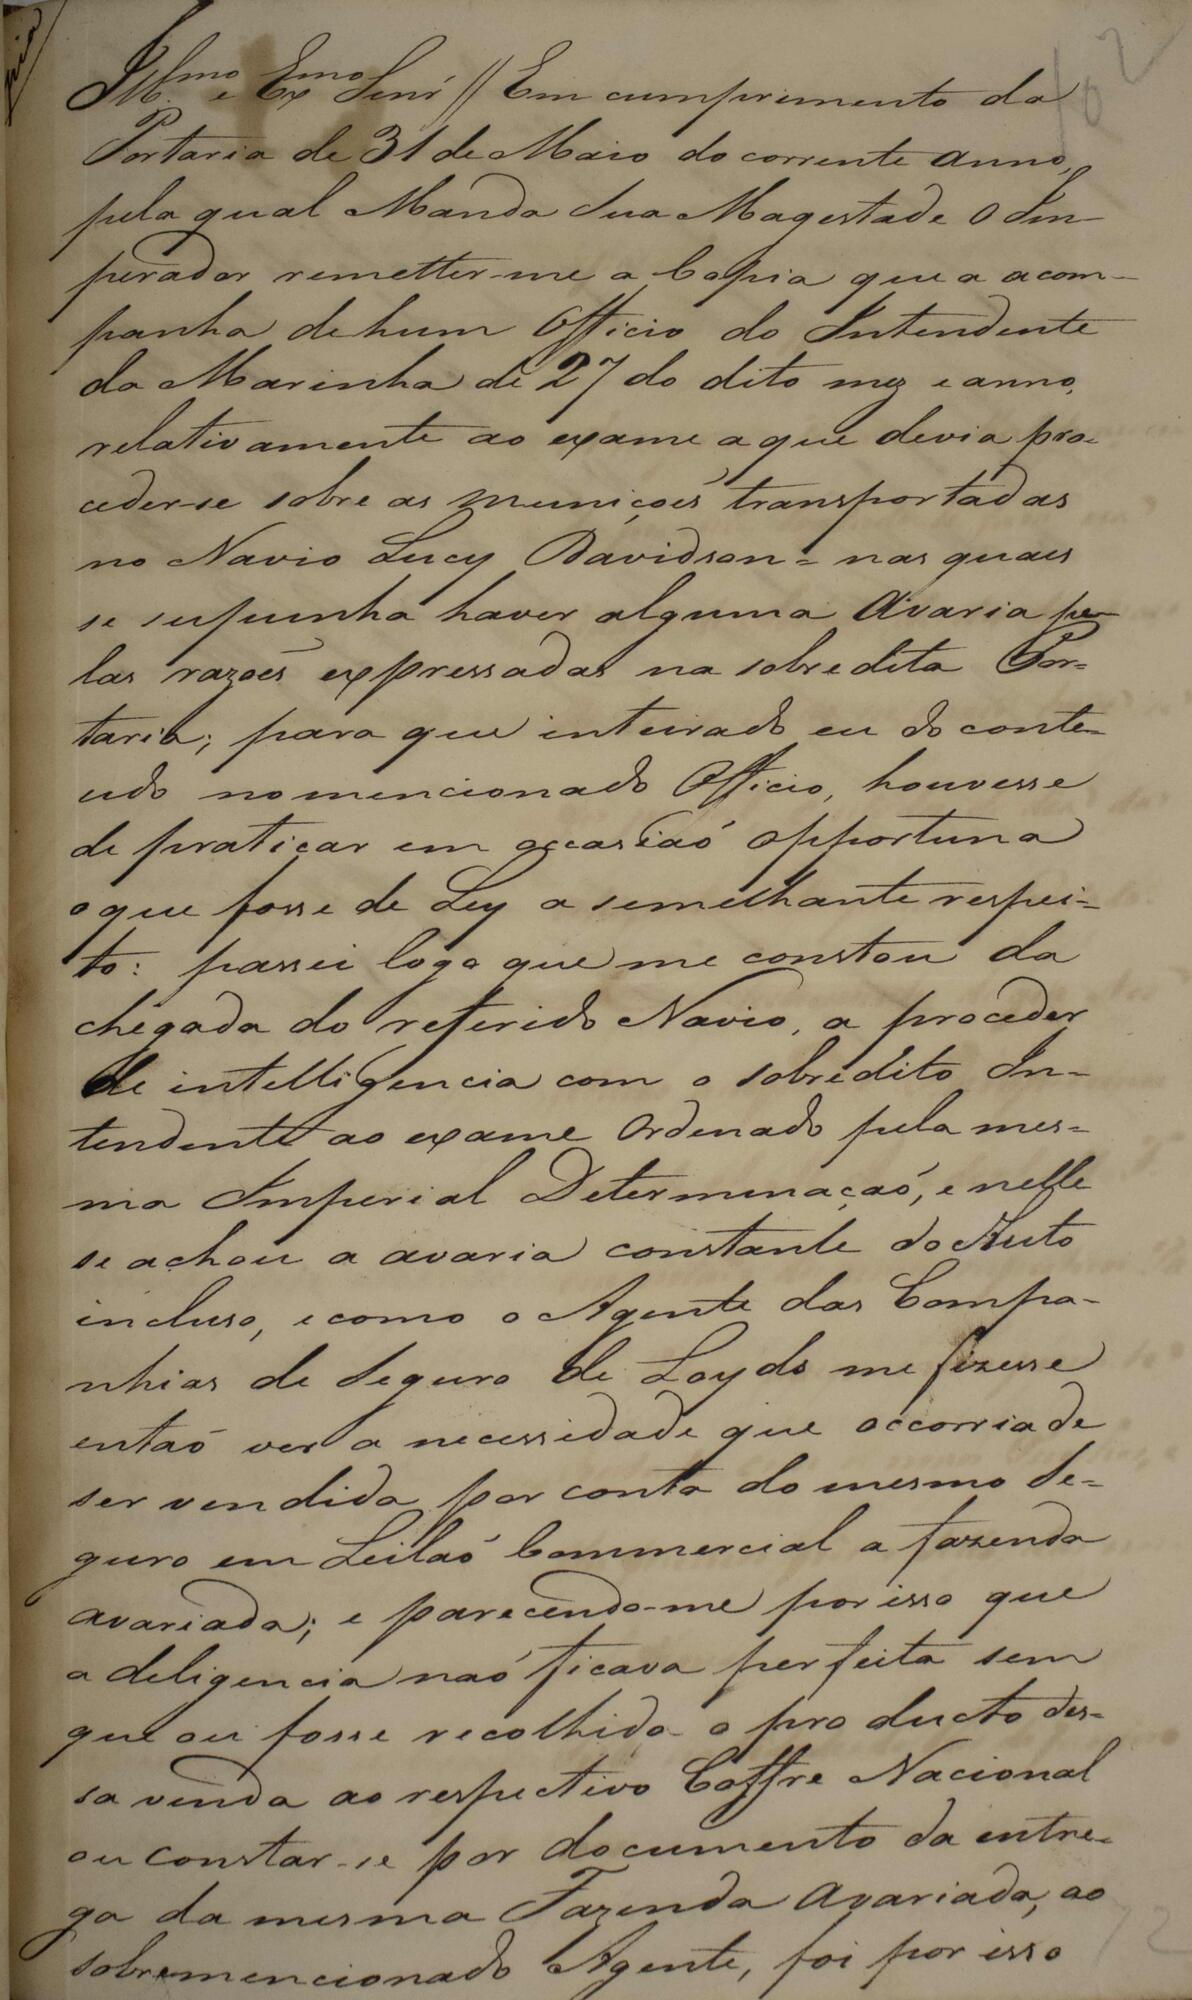 Ill.mo e Ex.mo Senr // Em cumprimento da
Portaria de 31 de Maio do corrente anno,
pela qual Manda Sua Magestade O Im-
perador remetter-me a Copia que a acom-
panha de hum Officio do Intendente
da Marinha de 27 do dito mez e anno,
relativamente ao exame a que devia pro-
ceder-se sobre as muniçoẽs transportadas
no Navio Lucy Davidson = nas quaes
se supunha haver alguma Avaria pe-
las razoẽs expressadas na sobredita Por-
taria; para que inteirado eu do conte-
udo no mencionado Officio, houvesse
de praticar em occasiaõ opportuna
o que fosse de Ley a semelhante respei-
to: passei logo que me constou da
chegada do referido Navio, a proceder
de intelligencia com o sobredito In-
tendente ao exame Ordenado pela mes-
ma Imperial Determinaçaõ, e nelle
se achou a avaria constante do Auto
incluso, e como o Agente das Compa-
nhias de Seguro de Loyds me fizesse
entaõ ver a necessidade que occorria de
ser vendida por conta do mesmo Se-
guro em Leilaõ Commercial a fazenda
avariada; e parecendo-me por isso que
a deligencia naõ ficava perfeita sem
que ou fosse recolhido o producto des-
sa venda ao respectivo Coffre Nacional
ou constar-se por documento da entre-
ga da mesma Fazenda Avariada, ao
sobremencionado Agente, foi por isso